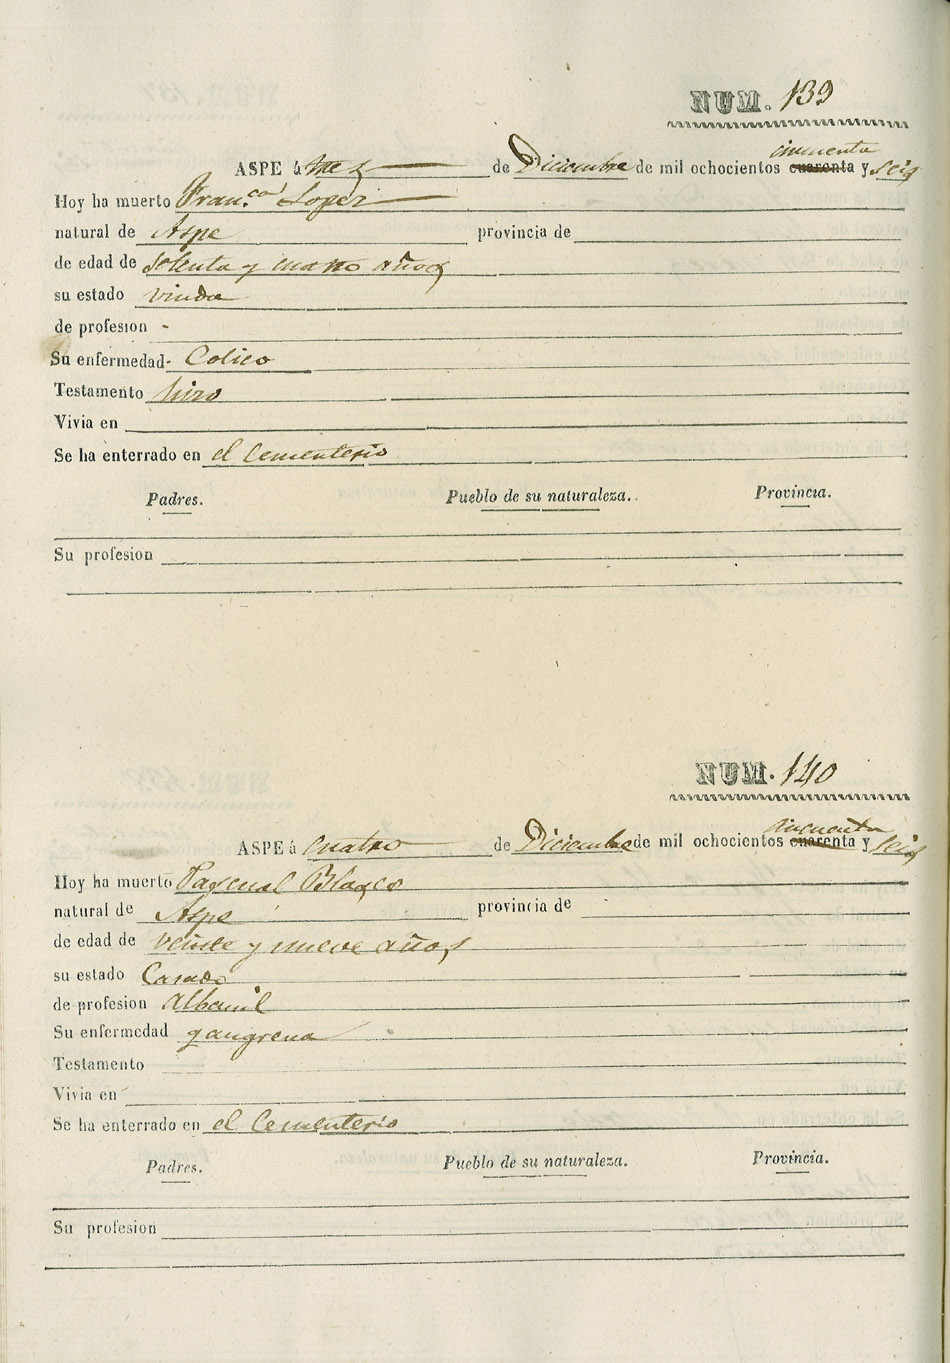 NUM. 139
ASPE á tres de Diciembre de mil ochocientos cuarenta cincuenta y seis
Hoy ha muerto Fran.ca Lopez
natural de Aspe provincia de
de edad de setenta y cuatro años
su estado viuda
de profesion -
Su enfermedad - Colico
Testamento hizo
Vivia en
Se ha enterrado en el Cementerio
Padres. Pueblo de su naturaleza. Provincia.
Su profesion
NUM. 140
ASPE á cuatro de Diciembre de mil ochocientos cuarenta cincuenta y seis
Hoy ha muerto Pascual Blasco
natural de Aspe provincia de
de edad de veinte y nueve años
su estado Casado
de profesion Albanil
Su enfermedad gangrena
Testamento
Vivia en
Se ha enterrado en el Cementerio
Padres. Pueblo de su naturaleza. Provincia.
Su profesion